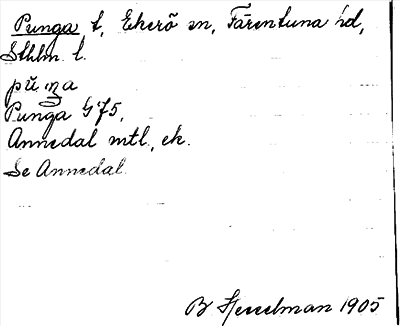 Punga t, Ekerö sn, Färentuna hd,
Sthlm l.
Punga G 75,
Annedal mtl, ek.
Se Annedal
B Hesselman 1905